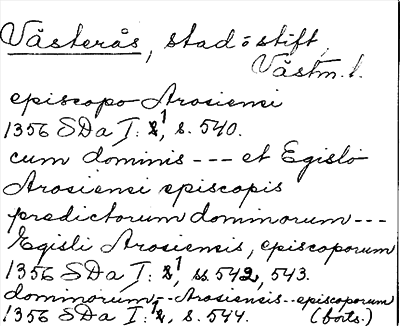 Västerås, stad o stift,
Västm. l.
episcopo Arosiensi
1356 SDa I: 1, s. 540.
cum dominis --- et Egislo
Arosiensi episcopis
predictorum dominorum ---
Egisli Arosiensis, episcoporum
1356 SDa I: 1, ss. 542, 543.
dominorum -- Arosiensis -- episcoporum
1356 SDa I: 1, s. 544. (forts.)